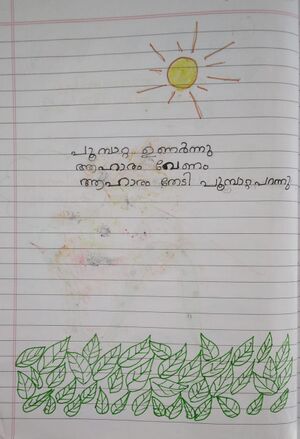 പൂമ്പാറ്റ ഉണർന്നു
ആഹാരം വേണം
ആഹാരം തേടി പൂമ്പാറ്റ പറന്നു